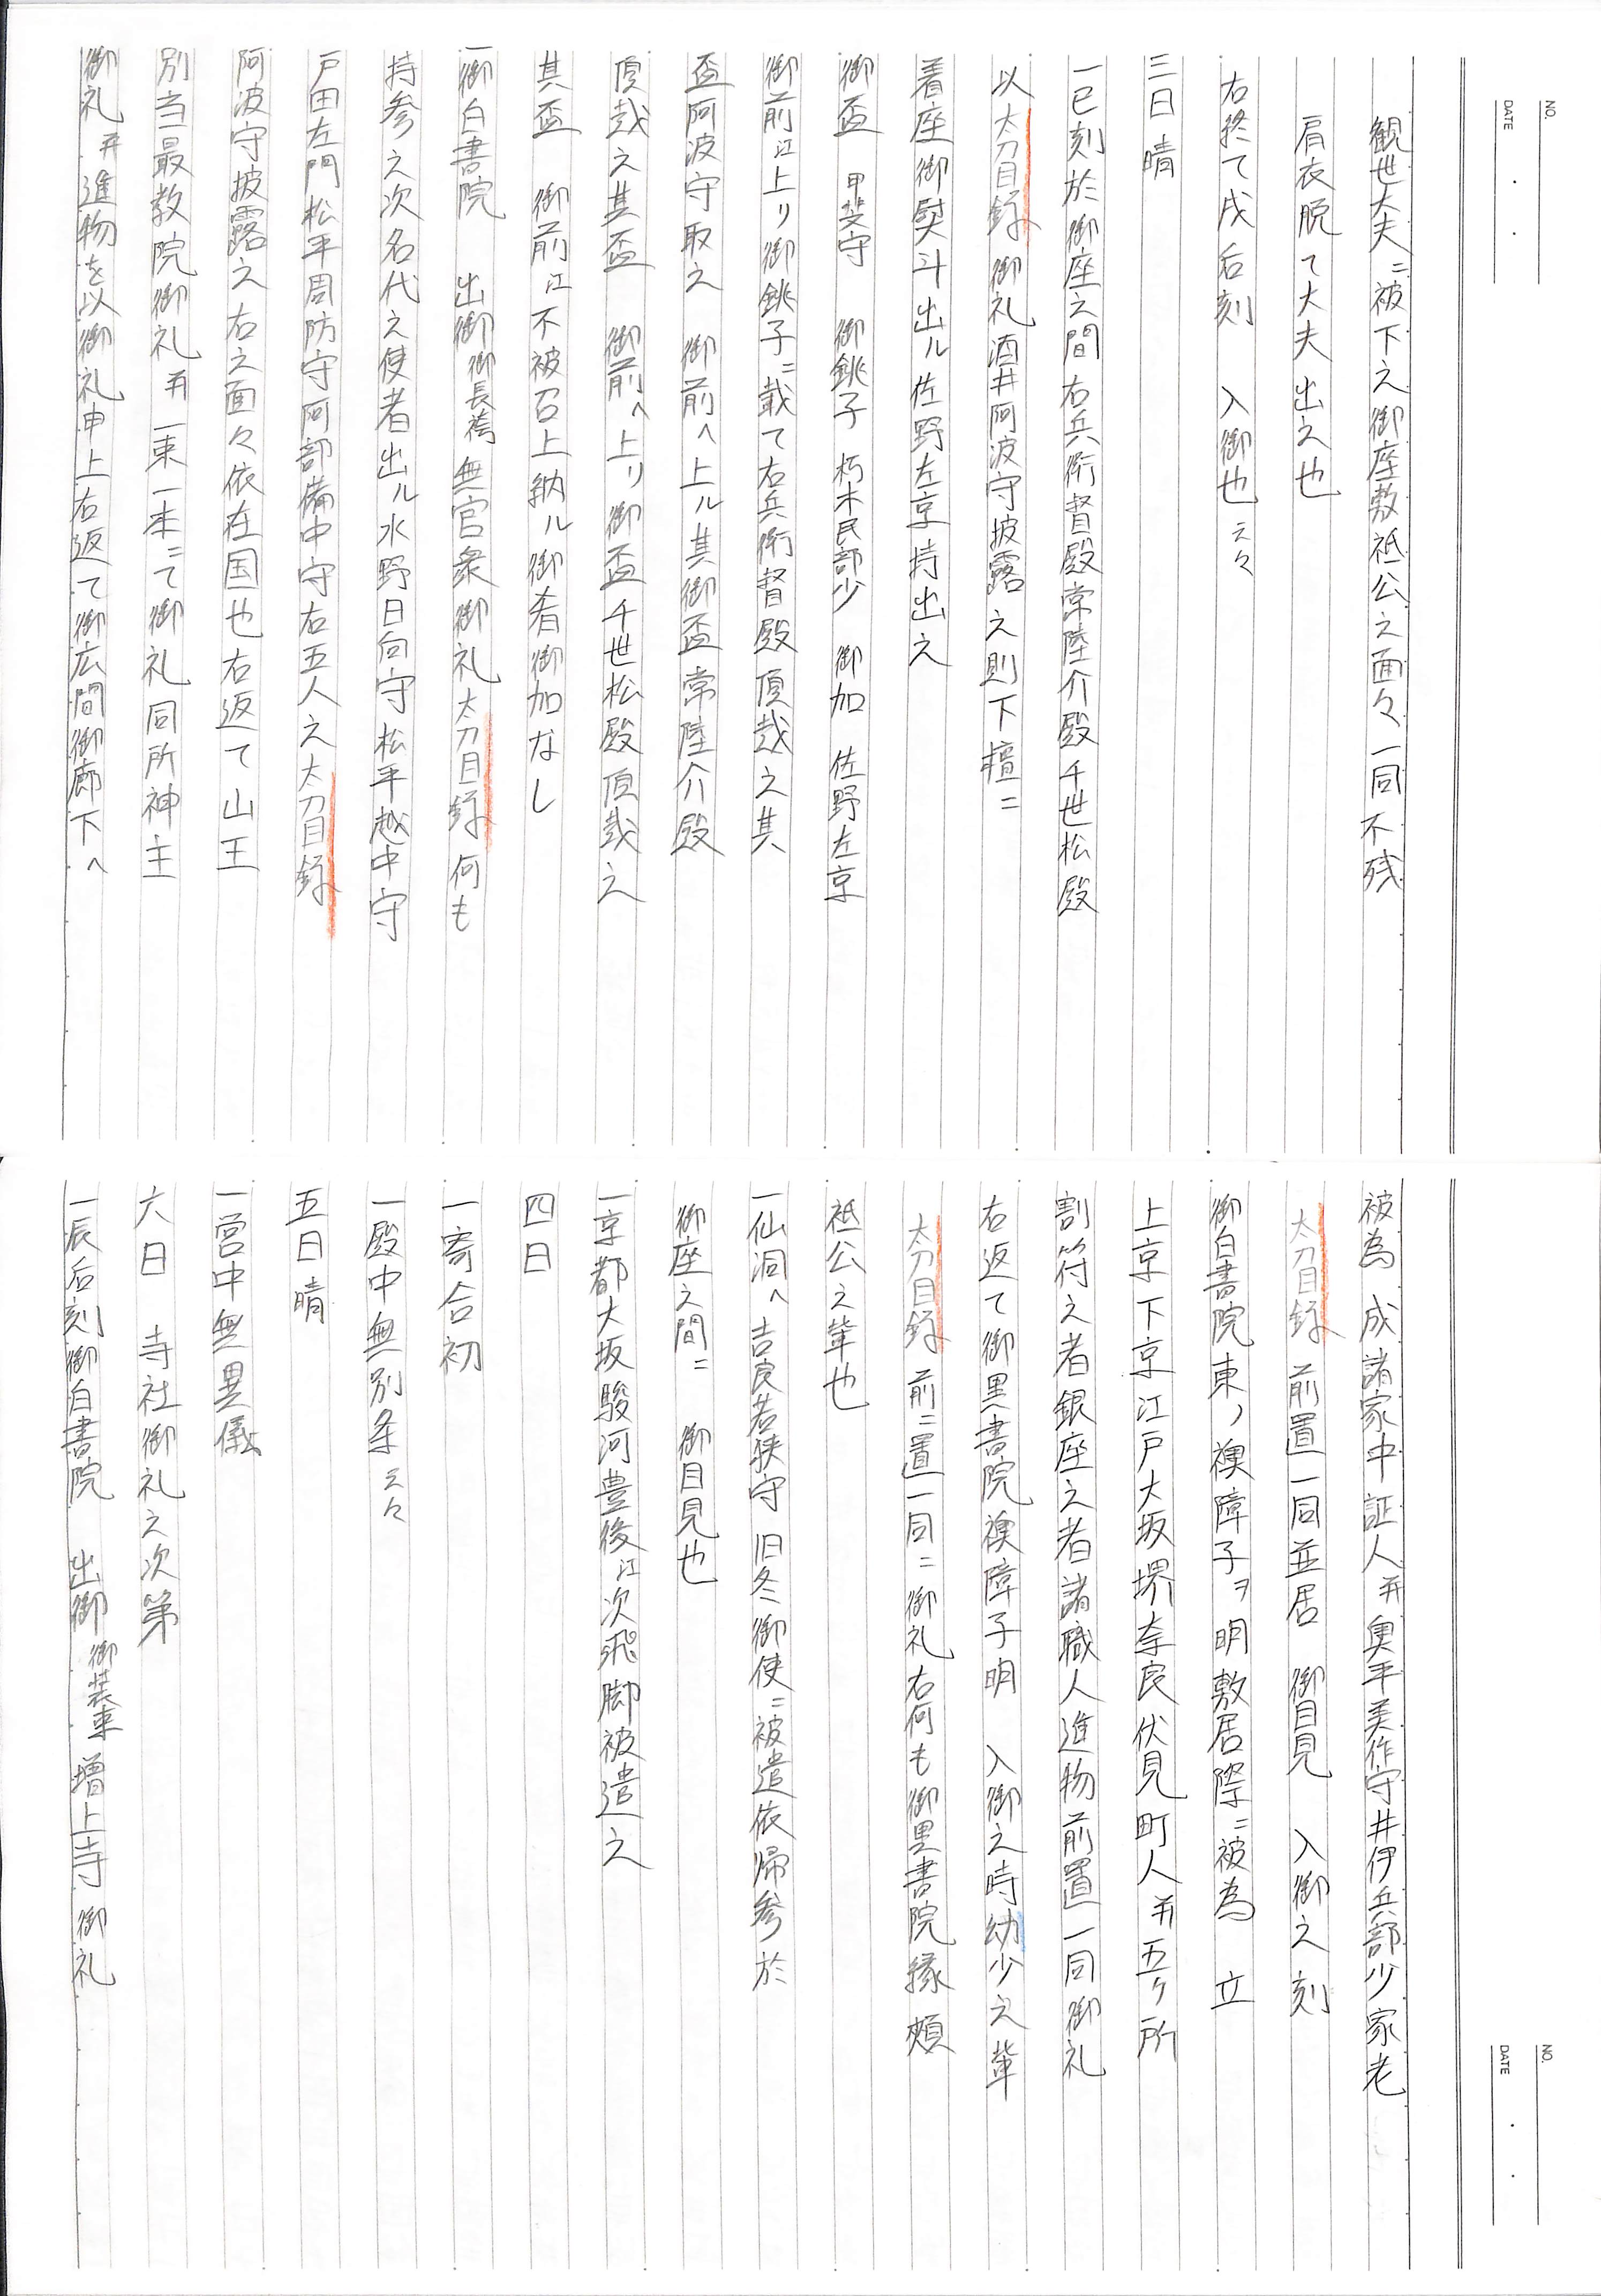 NO.
DATE
観世大夫ニ被下之御座敷祗公之面々一同不残
肩衣脱て大夫出之也
右終て戌后刻 入御也云々
三日 晴
一巳刻於御座之間右兵衛督殿常陸介殿千世松殿
以太刀目録御礼酒井阿波守披露之則下檀ニ
着座御熨斗出ル佐野左京持出之
御盃 甲斐守 御銚子 朽木民部少 御加 佐野左京
御前江上リ御銚子ニ載て右兵衛督殿頂戴之其
盃阿波守取之 御前へ上ル其御盃常陸介殿
頂戴之其盃 御前へ上リ御盃千世松殿頂戴之
其盃 御前江不被召上納ル御肴御加なし
一御白書院 出御御長袴無官衆御礼太刀目録何も
持参之次名代之使者出ル水野日向守松平越中守
戸田左門松平周防守阿部備中守右五人之太刀目録
阿波守披露之右之面々依在国也右返て山王
別当最教院御礼并一束一本ニて御礼同所神主
御礼并進物を以御礼申上右返て御広間御廊下へ
NO.
DATE
被為 成諸家中証人并奥平美作守井伊兵部少家老
太刀目録前置一同並居 御目見 入御之刻
御白書院東ノ襖障子ヲ明敷居際ニ被為 立
上京下京江戸大坂堺奈良伏見町人并五ケ所
割符之者銀座之者諸職人進物前置一同御礼
右返て御黒書院襖障子明 入御之時幼少之輩
太刀目録前ニ置一同ニ御礼右何も御黒書院縁頬
祗公之輩也
一仙洞へ吉良若狭守旧冬御使ニ被遣依帰参於
御座之間ニ 御目見也
一京都大坂駿河豊後江次飛脚被遣之
四日
一寄合初
一殿中無別条云々
五日 晴
一営中無異儀
六日 寺社御礼之次第
一辰后刻御白書院 出御御装束増上寺御礼